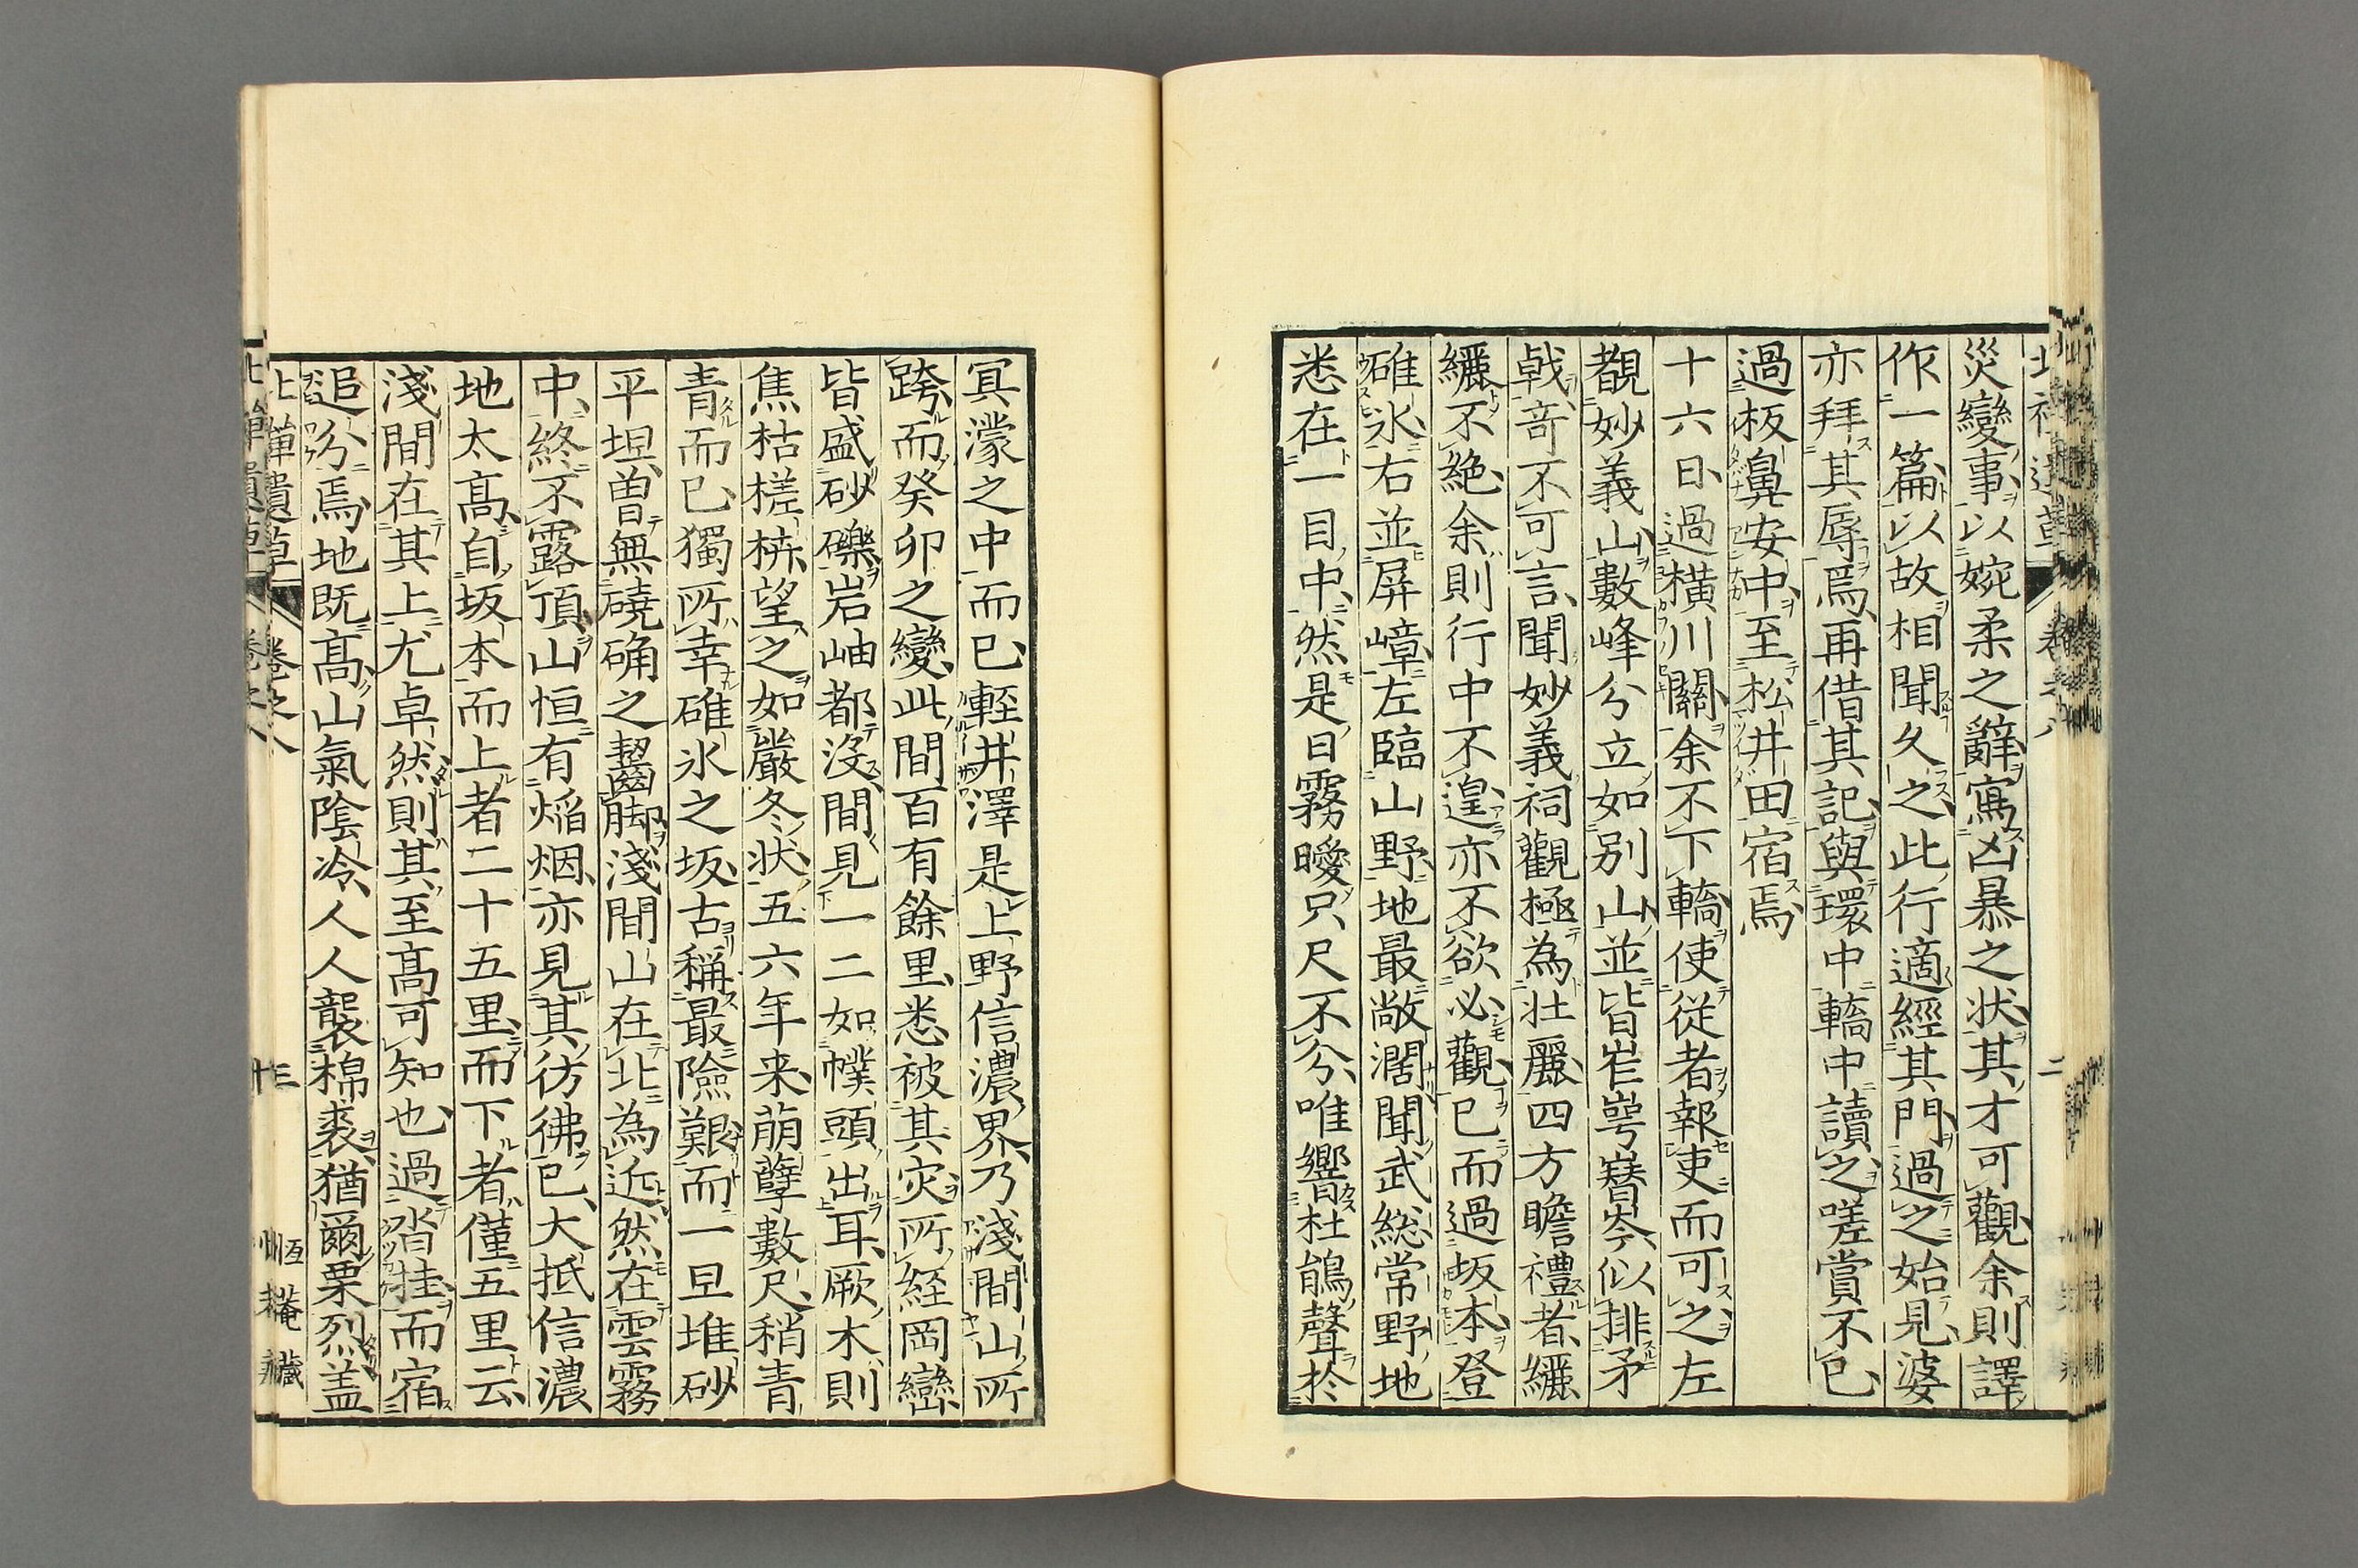 災變事以婉柔之辭寫凶暴之状其才可觀余則譯
作一篇以故相聞久之此行適經其門過之始見婆
亦拜其辱焉再借其記與環中轎中讀之嗟賞不已
過板鼻安中至松井田宿焉
十六日過横川關余不下轎使從者報吏而可之左
覩妙義山數峰分立如别山並皆岝崿簮岑似排矛
戟竒不可言聞妙義祠觀極為壮麗四方瞻禮者纚
纚不絶余則行中不遑亦不欲必觀已而過坂本登
碓氷右並屏嶂左臨山野地最敞濶聞武総常野地
悉在一目中然是日霧曖只尺不分唯響杜鵑聲於
冥濛之中而已輊井澤是上野信濃界乃淺間山所
跨而癸卯之變此間百有餘里悉被其灾所経岡巒
皆盛砂礫岩岫都没間見一二如幞頭出耳厥木則
焦枯槎枿望之如嚴冬状五六年来萠孽數尺稍青
青而已獨所幸碓氷之坂古稱最險艱而一旦堆砂
平坦曽無磽确之齧脚淺間山在北為近然在雲霧
中終不露頂山恒有熖烟亦見其彷彿已大抵信濃
地太髙自坂本而上者二十五里而下者僅五里云
淺間在其上尤卓然則其至髙可知也過沓挂而宿
追分焉地既髙山氣陰冷人人襲棉裘猶爾栗烈盖
卷之八
三
恆菴藏